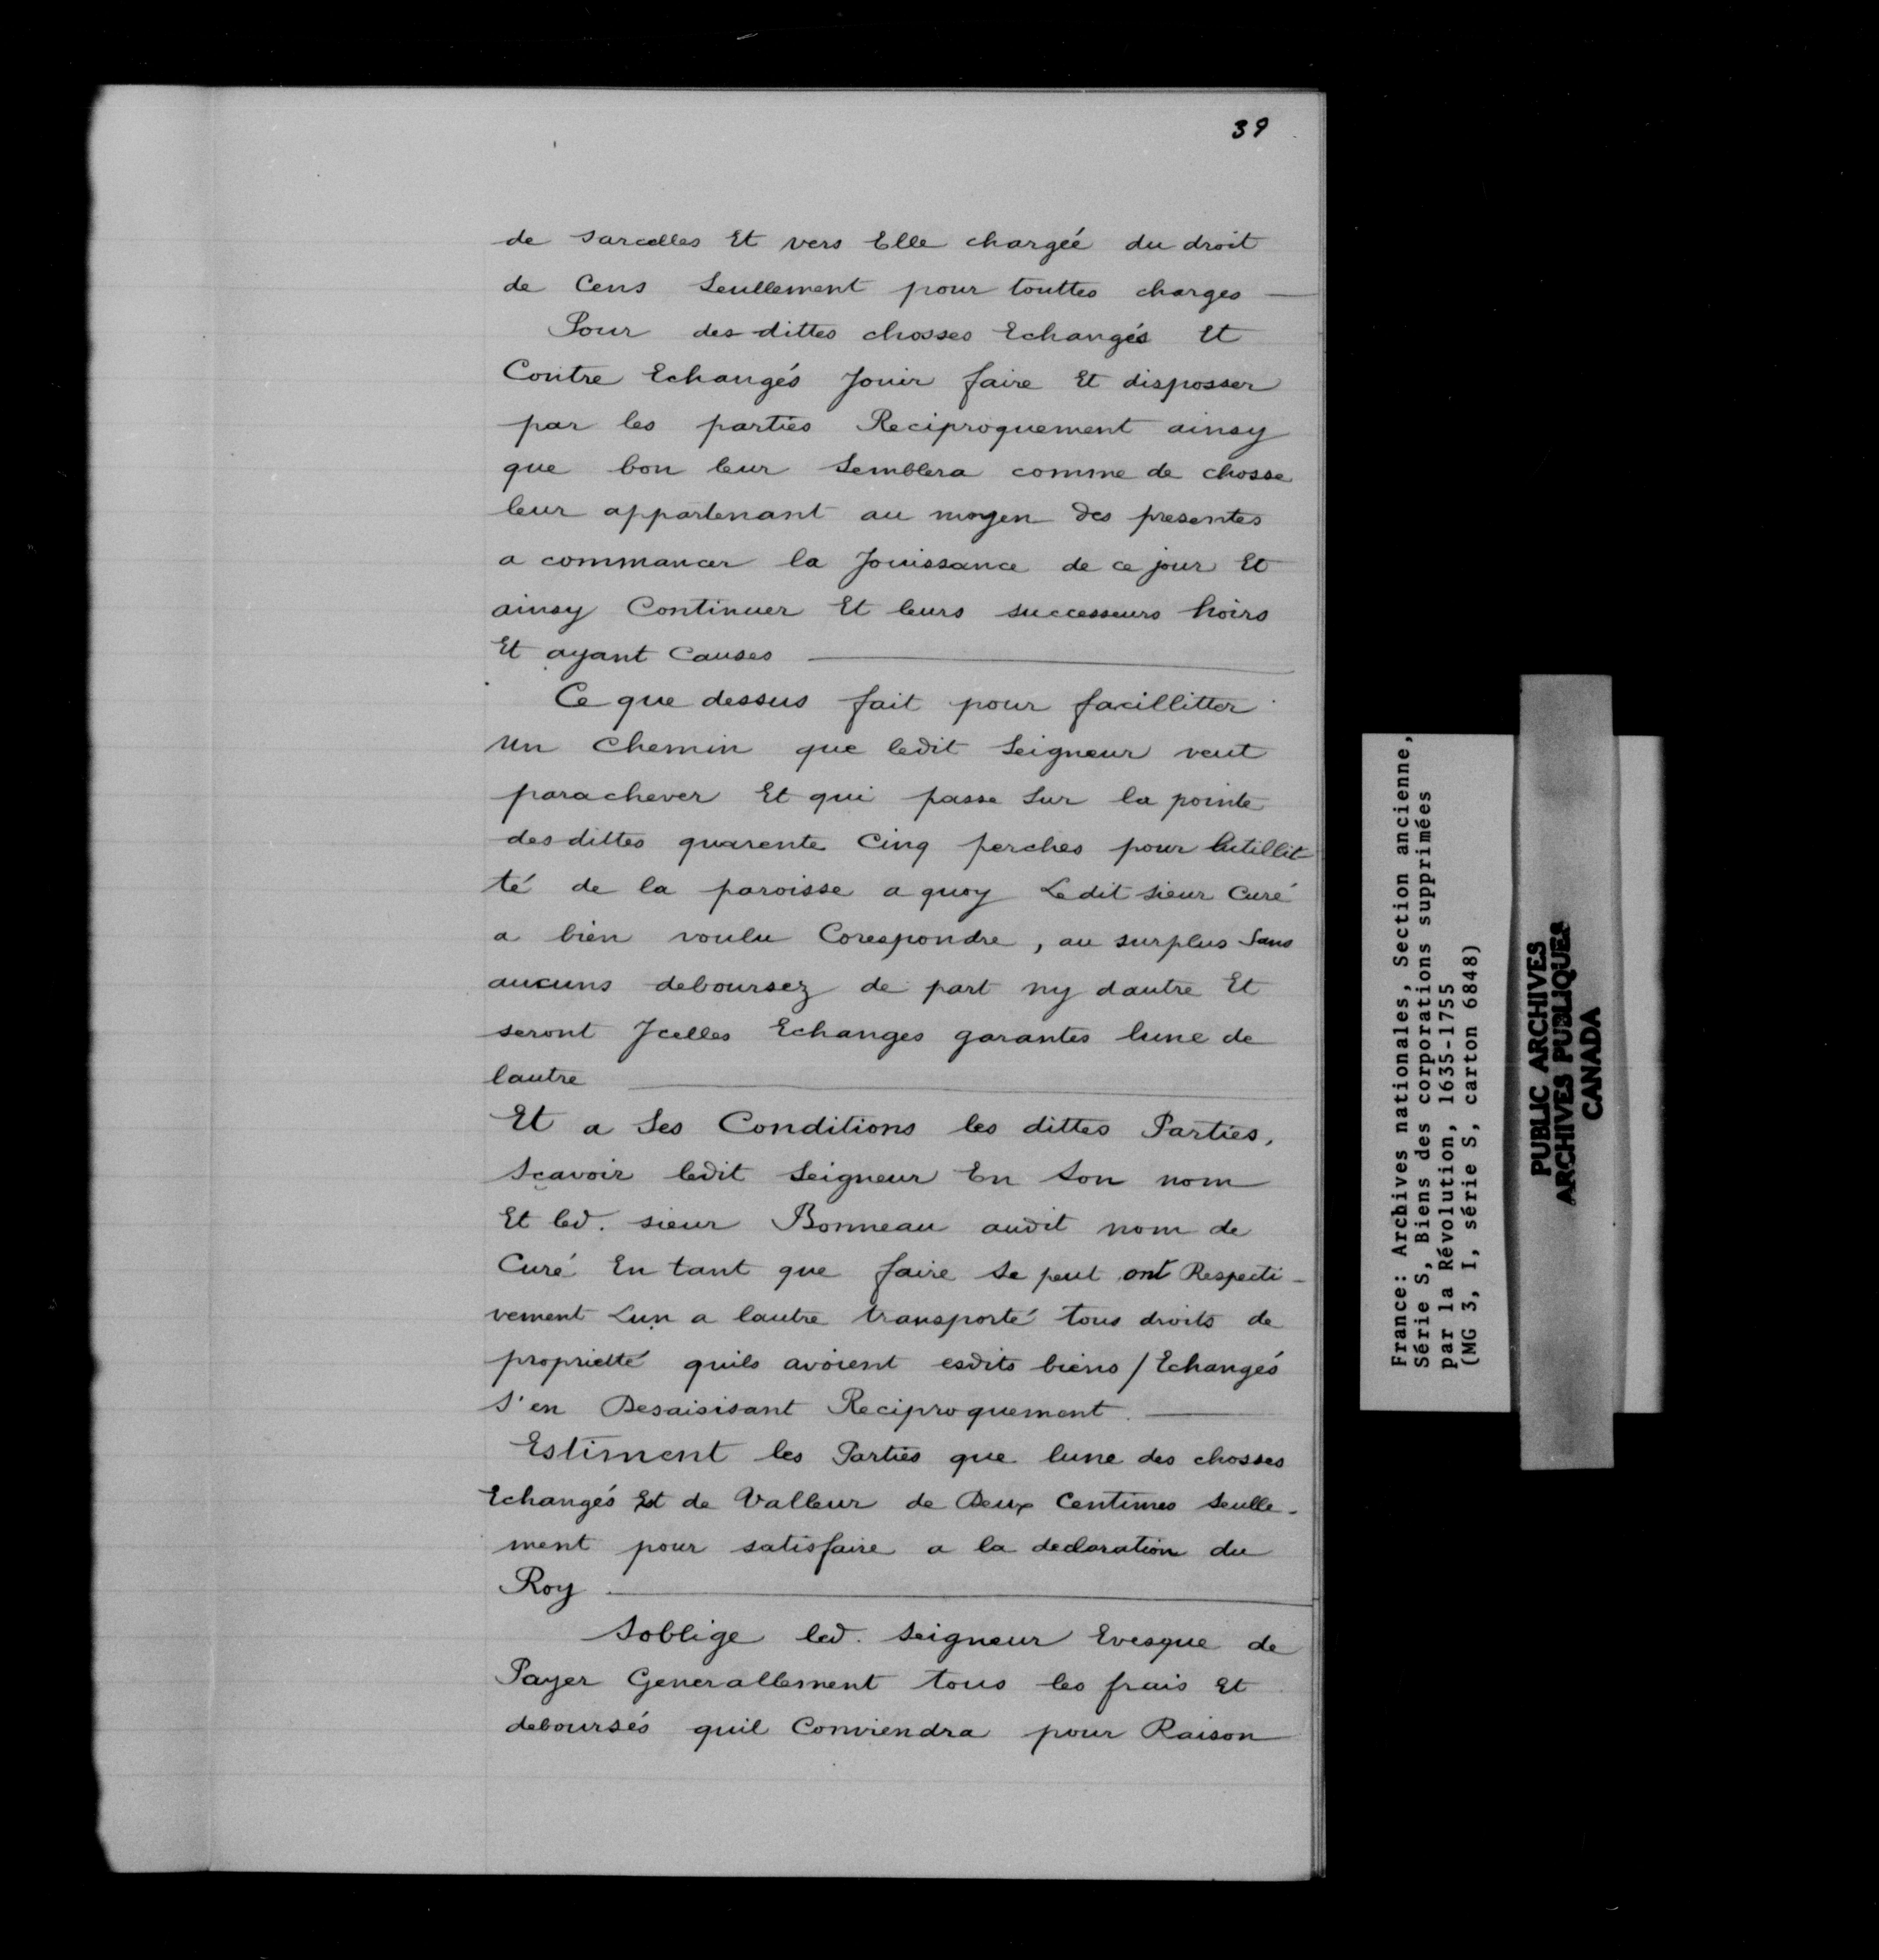 39
de sarcelles Et vers Elle chargée du droit
de Cens Seullement pour touttes charges —
Pour des dittes chosses Echangés Et
Contre Echangés Jouir faire Et disposser
par les parties Reciproquement ainsy
que bon leur Semblera comme de chosse
leur appartenant au moyen des presentes
a commancer la Jouissance de ce jour Et
ainsy Continuer Et leurs successeurs hoirs
Et ayant Causes —
Ce que dessus fait pour facillitter
un Chemin que ledit Seigneur veut
parachever Et qui passe Sur la pointe
des dittes quarente Cinq perches pour lutillit
té de la paroisse a quoy Le dit sieur Curé
a bien voulu Corespondre, au surplus Sans
aucuns deboursez de part ny dautre Et
seront Jcelles Echanges garantes lune de
lautre —
Et a Ses Conditions les dittes Parties,
Sçavoir ledit Seigneur En Son nom
Et led. sieur Bonneau audit nom de
Curé En tant que faire Se peut ont Respecti-
vement Lun a lautre transporté tous droits de
proprietté quils avoient esdits biens / Echangés
S'en Desaisisant Reciproquement. —
Estiment les Parties que lune des chosses
Echangés Est de Valleur de Deux Centimes Seulle-
ment pour satisfaire a la declaration du
Roy —
Soblige led. Seigneur Evesque de
Payer Generallement tous les frais Et
deboursés quil Conviendra pour Raison
France: Archives nationales, Section ancienne,
Série S, Biens des corporations supprimées
par la Révolution, 1635-1755
(MG 3, I, série S, carton 6848)
PUBLIC ARCHIVES
ARCHIVES PUBLIQUES
CANADA